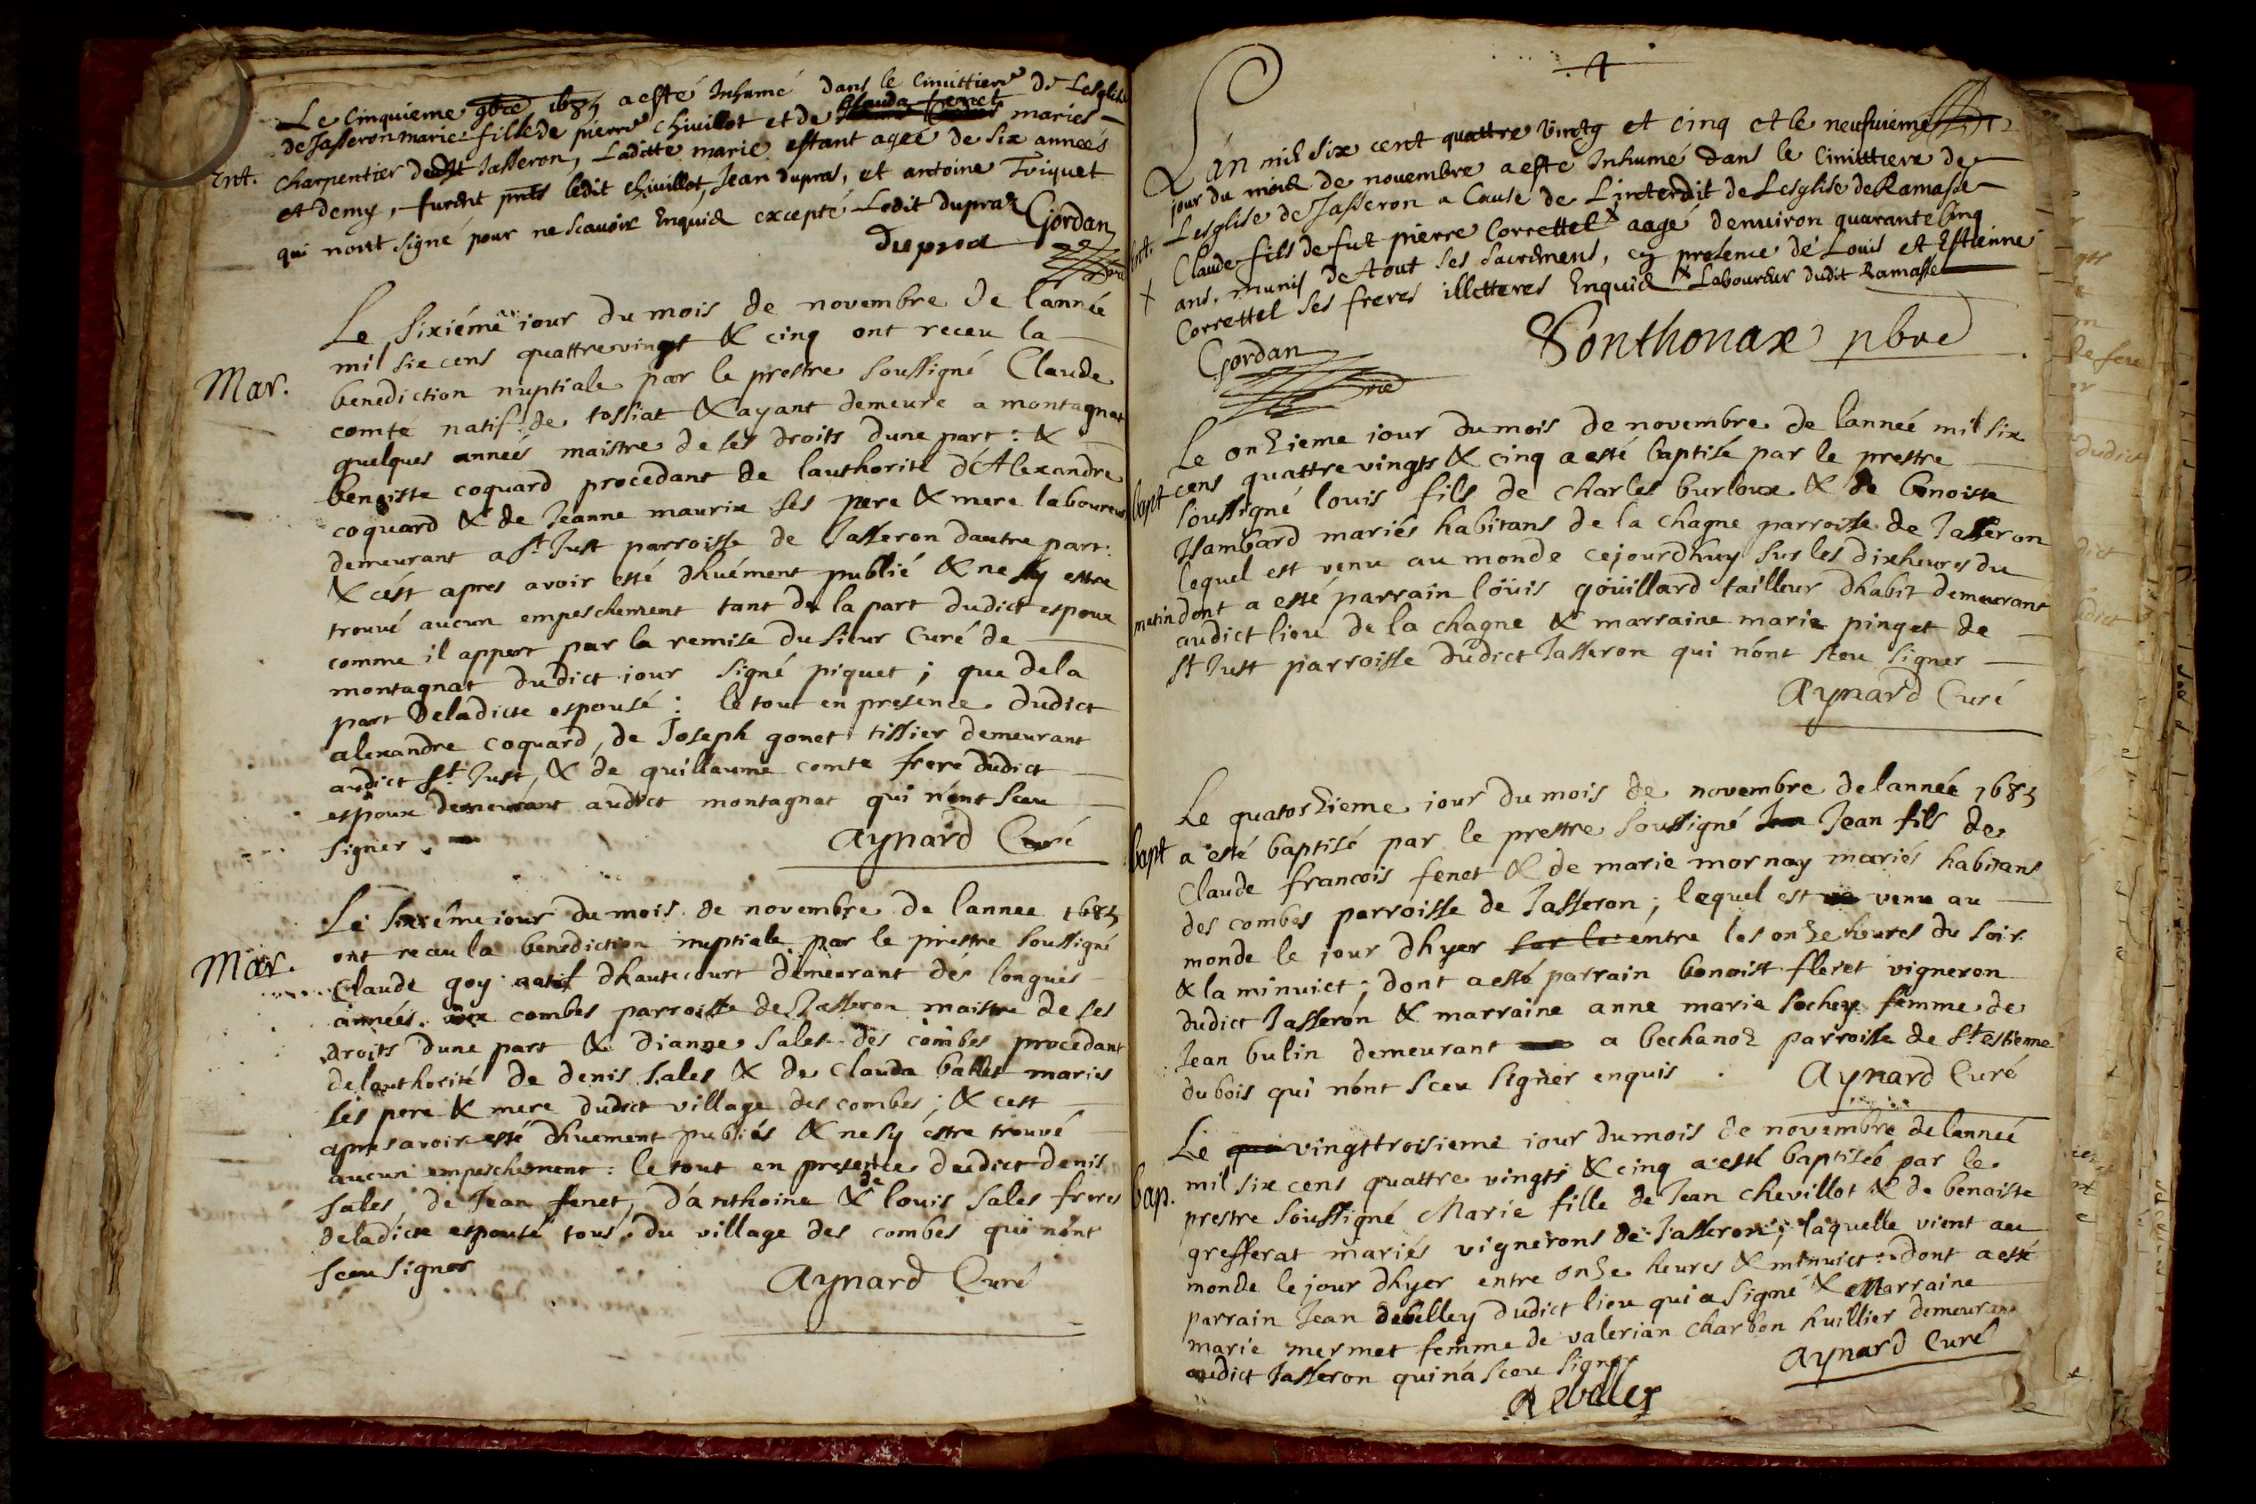 Le Cinquieme 9bre 1685 a esté Inhumé dans le Cimittiere de Lesglise
de Jasseron marie fille de pierre Chivillot et de Clauda fenet mariés
Ent. Charpentier dudit Jasseron, Laditte marie estant agée de six années
et demy, furent pnts ledit Chivillot, Jean Dupras, et antoine Triquet
qui nont signé pour ne scavoir Enquid excepté Ledit Dupraz Gordan
Dupra vic
Le sixiéme iour du mois de novembre de lannée
mil sie cens quattrevingt & cinq ont receu la
Mar. benediction nuptiale par le prestre soussigné Claude
comte natif de tossiat & ayant demeure a montagnat
quelques années maistre de ses droits dune part: &
benoiste coquard procedant de lauthorité d'Alexandre
coquard & de Jeanne maurix ses pere & mere laboureurs
demeurant a St Just parroisse de Jasseron dautre part:
& cést apres avoir esté dhuément publié & ne sy estre
trouvé aucun empeschement tant de la part dudict espoux
comme il appert par la remise du sieur Curé de
montagnat dudict iour signé piquet; que dela
part deladicte espousé: le tout en presence dudict
alexandre coquard, de Joseph gonet tissier demeurant
audict St Just, & de guillaume comte frere dudict
espoux demeurant audict montagnat qui nónt sceu
signer. Aynard Curé
Le sixiéme iour du mois de novembre de lannee 1685
ont receu la benediction nuptiale par le prestre soussigné
Mar. Claude goy natif dhautecourt demeurant dés longues
années aux combes parroisse de Jasseron maistre de ses
droits dune part & dianne sales des combes procedant
delauthorité de denis sales & de Clauda ballet mariés
ses pere & mere dudict village des combes; & cest
apres avoir esté dhuement publiés & ne sy éstre trouvé
aucun empeschement: le tout en presence dudict denis
sales de Jean fenet, dánthoine & de louis sales freres
deladicte espousé tous du village des combes qui nónt
sceu signer
Aynard Curé
Lán mil six cent quattre vingtz et cinq et le neufvieme
jour du mois de novembre a esté Inhumé dans le Cimittiere de
Ent. Lesglise de Jasseron a Cause de Linterdit de Lesglise de Ramasse
Claude fils de fut pierre Correttel x aagé denuiron quarante Cinq
x ans, munis de tout ses sacremens, en presence de Louis et Estienne
Correttel ses freres illetteres Enquid x Laboureur dudit Ramasse
Gordan vic
Sonthonax pbre
Le onzieme iour du mois de novembre de lanneé mil six
cens quattre vingts & cinq a esté baptisé par le prestre
bapt soussigné louis fils de charles burloux & de benoiste
Isambard mariés habitans de la chagne parroisse de Jasseron
lequel est venu au monde cejourdhuy sus les dixheures du
matin dont a esté parrain loüis goüillard tailleur dhabit demeurant
audict lieu de la chagne & marraine marie pinget de
St Just parroisse dudict Jasseron qui nónt sceu signer
Aynard Curé
Le quatorzieme iour du mois de novembre delannéé 1685
bapt a esté baptisé par le prestre soussigné Jean fils de
Claude francois fenet & de marie mornay mariés habitans
des combes parroisse de Jasseron; lequel est venu au
monde le iour dhyer sur le entre les onze heures du soir
& la minuict; dont a esté parrain benoist fleret vigneron
dudict Jasserón & marraine anne marie sochay femme de
Jean bulin demeurant a bechanoz parroisse de St estienne
dubois qui nónt sceu signer enquis. Aynard Curé
Le vingttroisieme iour du mois de novembre delanneé
mil six cens quattre vingts & cinq a esté baptiséé par le
bap. prestre soussigné Marie fille de Jean chevillot & de benoiste
grefferat mariés vignerons de Jasseron; laquelle vient au
monde le jour dhyer entre onze heures & minuict: dont a esté
parrain Jean debelley dudict lieu qui a signé & Marraine
marie mermet femme de valerian charbon huillier demeurant
audict Jasseron qui ná sceu signer
Aynard Curé